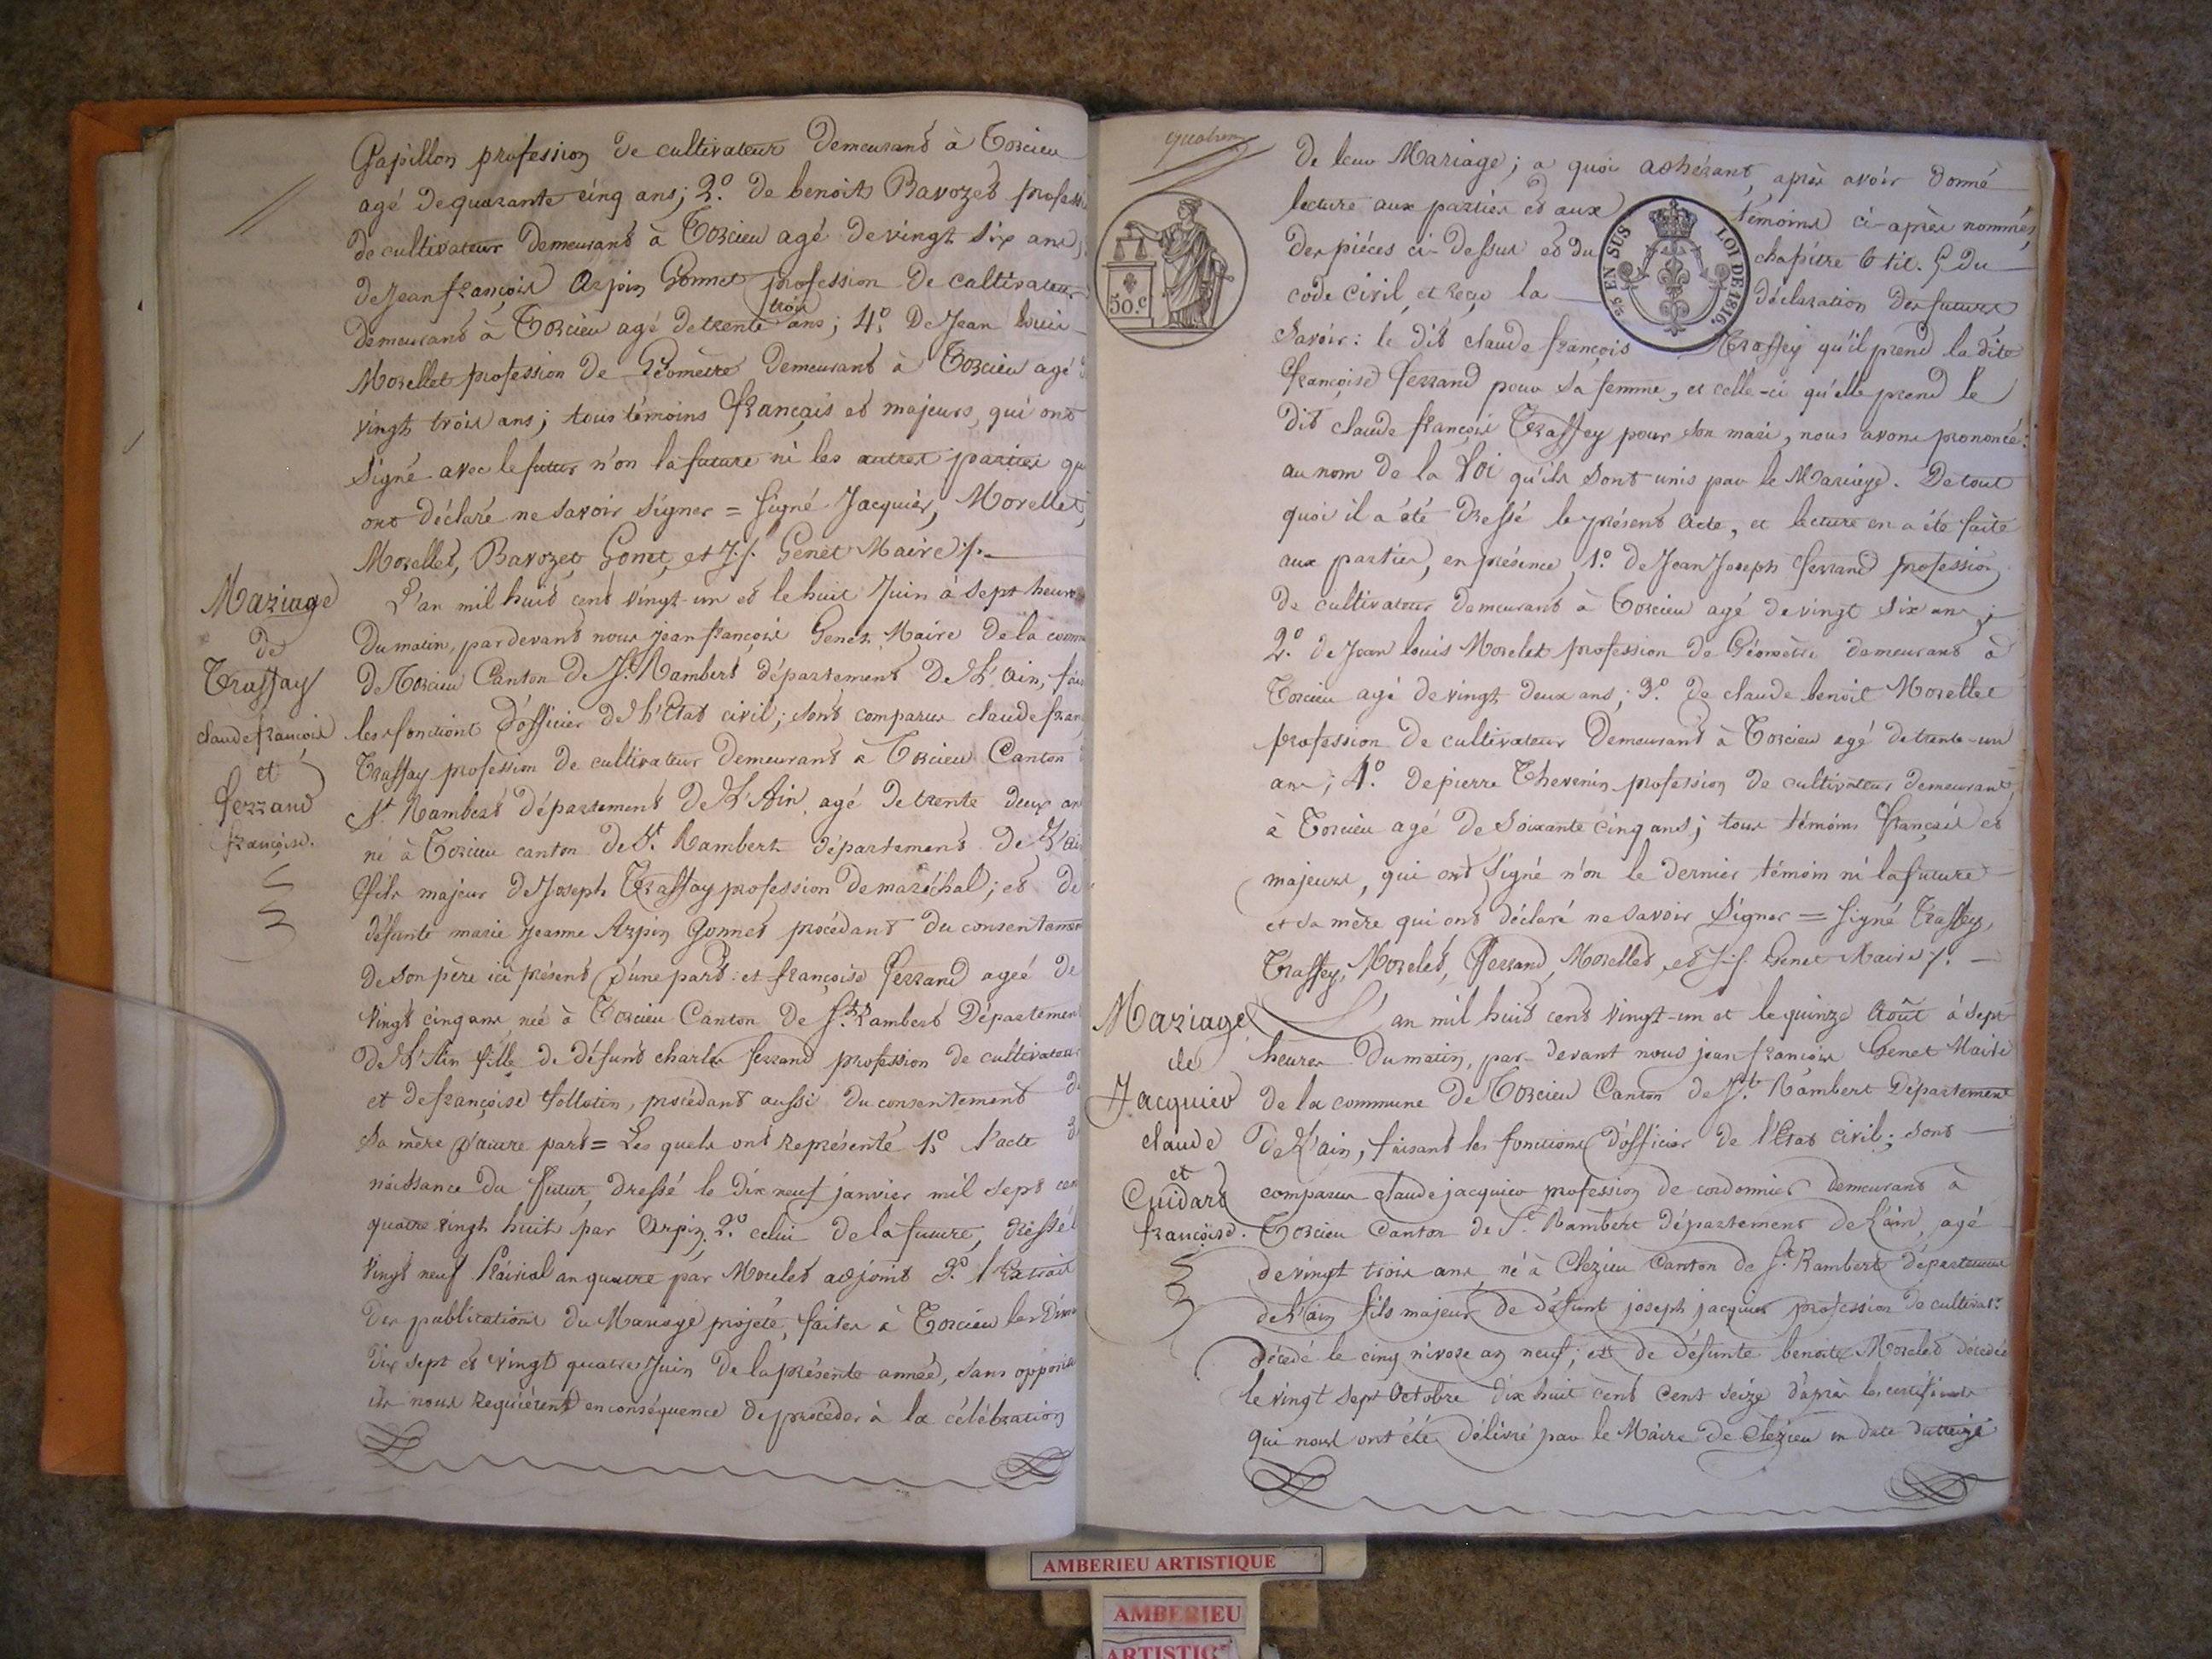 Papillon profession de cultivateur demeurant à Torcieu
agé de quarante cinq ans; 2.º de benoit Bavozet profess
de cultivateur demeurant à Torcieu agé de vingt six ans;
de Jean françois Arpin Gonnet profession de cultivateur
trois
demeurant à Torcieu agé de trente ans; 4.º De Jean louis
Morellet profession de Géomètre demeurant à Torcieu agé
vingt trois ans; tous témoins français et majeurs, qui ont
signé avec le futur n'on la future ni les autres parties qu
ont déclaré ne savoir signer = signé Jacquier, Morellet,
Morellet, Bavozet, Gonet, et J. f. Genet Maire /.
Mariage
de
Traffay
claude françois
et
ferrand
françoise.
L'an mil huit cent vingt-un et le huit Juin à sept heures
du matin, pardevant nous jean françois Genet Maire de la comm
de Torcieu Canton de St. Rambert département de L'Ain, fais
les fonctions d'officier de l'Etat civil; sont comparus claude fran
Traffay profession de cultivateur demeurant à Torcieu Canton
St. Rambert département de L'Ain, agé de trente deux an
né à Torcieu canton de St. Rambert département de L'ai
fils majeur de Joseph Traffay profession de maréchal; et de
défunte marie jeanne Arpin Gonnet procédant du consentemen
de son père ici présent d'une part: et françoise ferrand ageé de
vingt cinq ans neé à Torcieu Canton de St. Rambert Département
de L'Ain fille de défunt charles ferrand profession de cultivateur
et de françoise tollotin, procédant aussi du consentement de
sa mère d'autre part = Les quels ont représenté 1.º l'acte
naissance du futur, dressé le dix neuf janvier mil sept cen
quatre vingt huit par Arpin; 2.º celui de la future, dressé l
vingt neuf Prairial an quatre par Morelet adjoint 3.º l'Extrait
des publications du Mariage projeté, faites à Torcieu les dim
dix sept et vingt quatre Juin de la présente année, sans opposit
ils nous requièrent en conséquence de procéder à la célébration
de leur Mariage; a quoi adhérant, après avoir donné
lecture aux parties et aux témoins ci-après nommés,
des piéces ci-dessus et du chapitre 6 tit. 5 du
code civil, et reçu la déclaration des futurs
50.c
25 EN SUS
LOI DE 1816.
Savoir: le dit claude françois Traffey qu'il prend la dite
françoise ferrand pour sa femme, et celle-ci qu'elle prend le
dit claude françois Traffey pour son mari, nous avons prononcé:
au nom de la Loi qu'ils sont unis par le Mariage. De tout
quoi il a été dressé le présent acte, et lecture en a été faite
aux parties, en présence, 1.º de Jean Joseph ferrand profession
de cultivateur demeurant à Torcieu agé de vingt six ans;
2.º de Jean louis Morelet profession de Géomètre demeurant à
Torcieu agé de vingt deux ans; 3.º de claude benoit Morellet
profession de cultivateur demeurant à Torcieu agé de trente-un
ans; 4.º de pierre Thevenin profession de cultivateur demeurant,
à Torcieu agé de soixante cinq ans; tous témoins français et
majeurs, qui ont signé n'on le dernier témoin ni la future
et sa mère qui ont déclaré ne savoir signer = signé Traffey,
Traffey, Morelet, ferrand, Morellet, et J. f. Genet Maire /.
Mariage
de
Jacquier
claude
et
Guidard
françoise.
L'an mil huit cent vingt-un et le quinze Août à sept
heures du matin, par-devant nous jean françois Genet Maire
de la commune de Torcieu Canton de St. Rambert Département
de L'ain, faisant les fonctions d'officier de l'Etat civil; sont
comparus claude jacquier profession de cordonnier demeurant à
Torcieu Canton de St. Rambert département de L'ain, agé
de vingt trois ans, né à Clezieu Canton de St. Rambert département
de L'ain fils majeur de défunt joseph jacquier profession de cultivat.r
décedé le cinq nivose an neuf; et de défunte benoite Morelet décedée
le vingt sept Octobre dix huit cent cent seize d'après les certificats
qui nous ont été délivré par le Maire de Clezieu en date du treize
AMBERIEU ARTISTIQUE
AMBERIEU
ARTISTIC